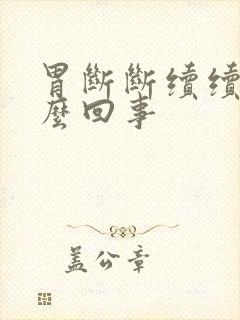 胃斷斷續續
麼回事
盖公章